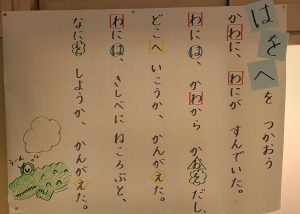 はをへを つかおう
かわに、わにが すんでいた。
わには、かわから かおをだし、
どこへ いこうか、かんがえた。
わには、きしべに ねころぶと、
なにを しようか、かんがえた。
うーん